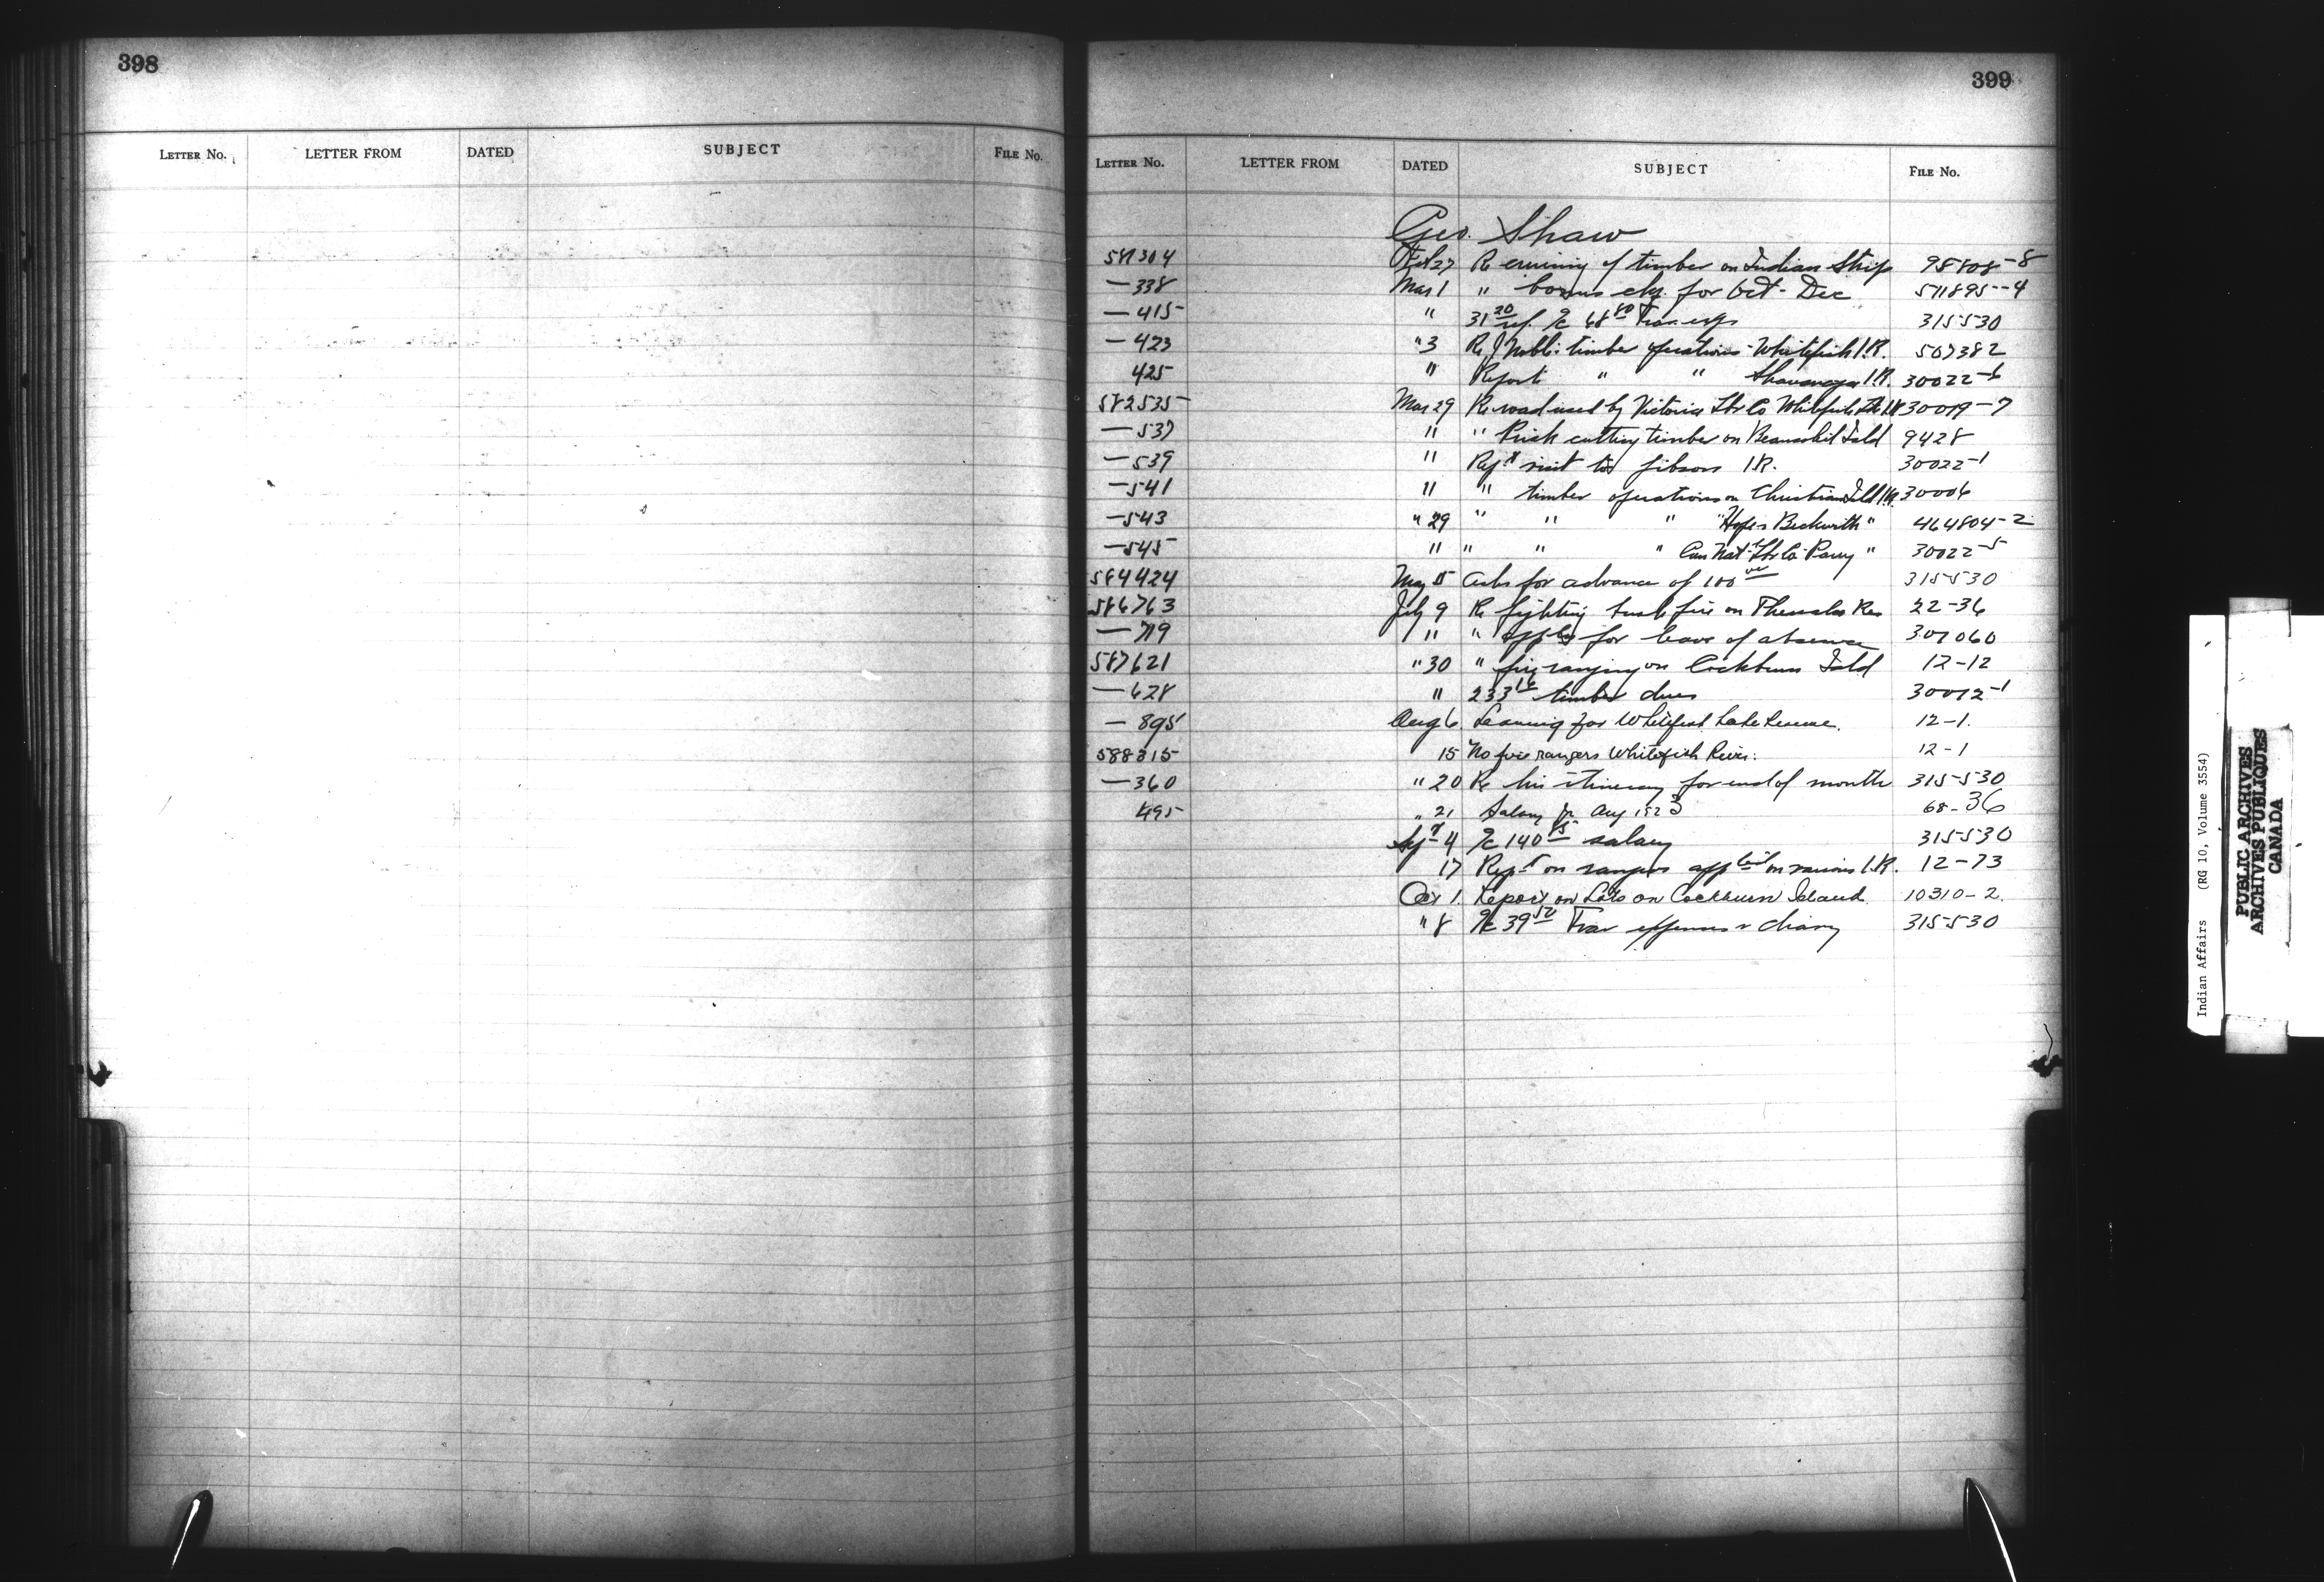 398
LETTER No. LETTER FROM DATED SUBJECT FILE No.
399
LETTER No. LETTER FROM DATED SUBJECT FILE No.
Geo. Shaw
581304 Feb 27 Re cruising of timber on Indian Strip 98808-8
— 338 Mar 1 " bonus chq. for Oct - Dec 571895-4
— 415 " 31 20 ref. a/c 68 80 Trav. exps 315530
— 423 " 3 Re J Noble timber operations - Whitefish I.R. 507382
425 " Report " " Shawanaga I.R. 30022-6
582535 Mar 29 Re road used by Victoria Lbr Co Whitefish Lk I.R. 30019-7
— 537 " " cutting timber on Beausoleil Isld 9428
— 539 " Rept visit to Gibson I.R. 30022-1
— 541 " " timber operations on Christian Isld I.R. 30006
— 543 " 29 " " " " Beckwith " 464804-2
— 545 " " " " Can Nat Lbr Co Parry " 30022-5
584424 May 5 Asks for advance of 100 00 315530
586763 July 9 Re fighting bush fire on Thessalon Res 22-36
— 719 " " appln for leave of absence 307060
587621 " 30 " fire ranging on Cockburn Isld 12-12
— 628 " 233 16 timber dues 30012-1
— 895 Aug 6. Leaving for Whitefish Lake Reserve. 12-1.
588315 15 No fire rangers Whitefish River. 12-1
— 360 " 20 Re his itinerary for end of month 315530
495 " 21 Salary for Aug 1923 68-36
Sept 4 a/c 140 85 salary 315530
17 Rept on rangers on various I.R. 12-73
Oct 1. Report on Lots on Cockburn Island. 10310-2.
" 8 a/c 39 52 Trav expenses & diary 315530
Indian Affairs (RG 10, Volume 3554)
PUBLIC ARCHIVES
ARCHIVES PUBLIQUES
CANADA